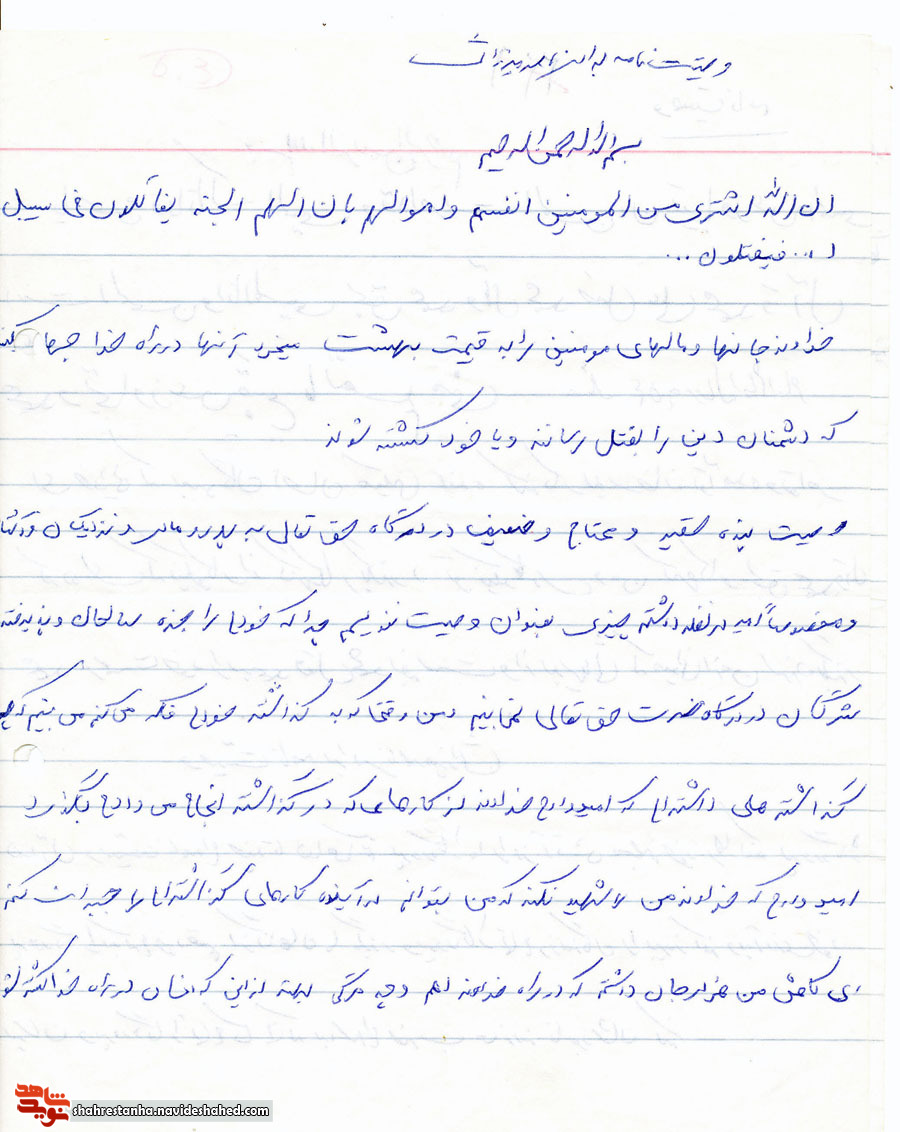 وصیت نامه
بسم الله الرحمن الرحیم
ان الله اشتری من المومنین انفسم واموالهم بان الهم الجنه یقاتلون فی سبیل
ا ... فیقتلون ...
خداوند جانها و مالهای مومنین را به قیمت بهشت میخرد آنها در راه خدا جهاد کنند
که دشمنان دین را بقتل رسانند و یا خود کشته شوند
وصیت بنده حقیر و محتاج و ضعیف در درگاه حق تعالی به پدر و مادر و نزدیکان و
و مخصوصاً چیزی بعنوان وصیت نویسم چرا که خودم را جزء صالحان و پذیرفته
شدگان در درگاه حضرت حق تعالی نمی بینم ومن وقتی که به گذشته خودم فکر می کنم می بینم که چه
گذاشته های داشته ام که امیدوارم خداوند از کارهای که در گذاشته انجام می دادم بگذرد
امیدوارم که خداوند من را شهید نکند که من بتوانم در آینده کارهای گذاشته ام را جبران کنم
ای کاش من هزار جان داشتم که در راه خدا دهم و چه مرگی بهتر از این که انسان در راه خدا کشته شود
شاهد
نوید
shahrestanha.navideshahed.com